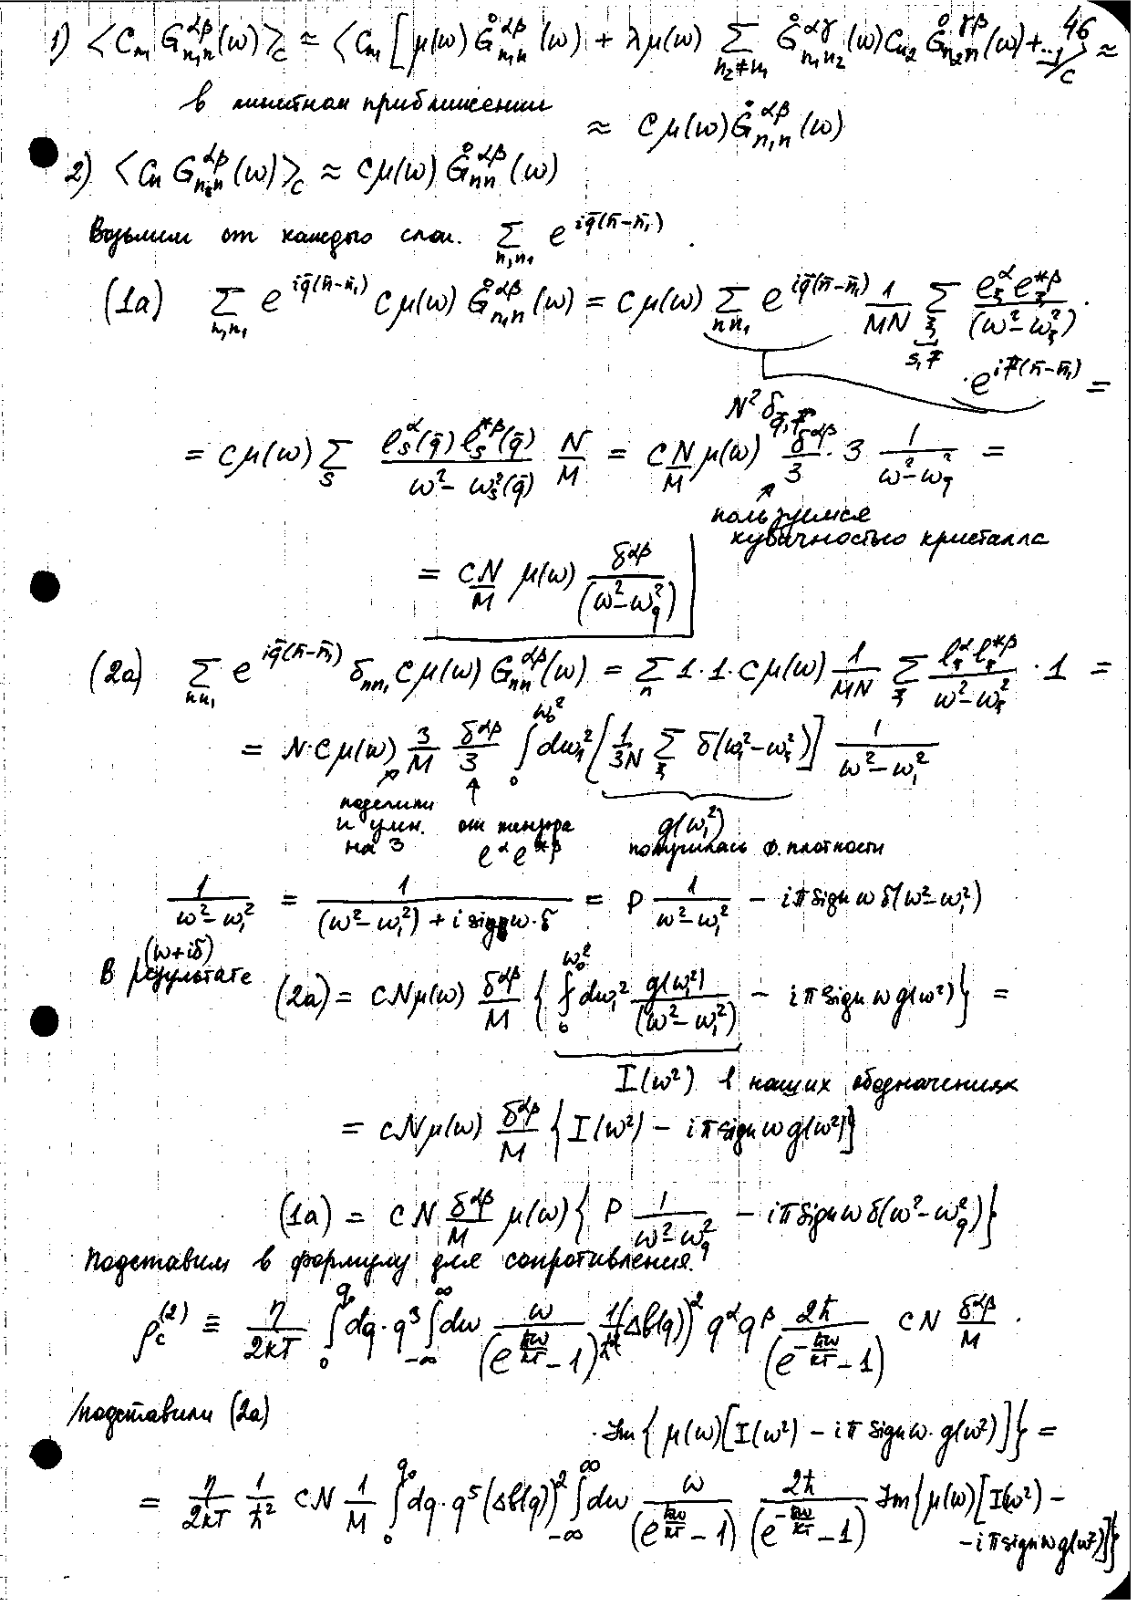 46
1) ⟨C_{n_1} G^{αβ}_{n_1n}(ω)⟩_c ≈ ⟨C_{n_1} [μ(ω) G̊^{αβ}_{n_1n}(ω) + λμ(ω) Σ_{n_2≠n_1} G̊^{αγ}_{n_1n_2}(ω) C_{n_2} G̊^{γβ}_{n_2n}(ω) + ...]⟩_c ≈
в линейном приближении
≈ Cμ(ω) G̊^{αβ}_{n_1n}(ω)
2) ⟨C_n G^{αβ}_{nn}(ω)⟩_c ≈ Cμ(ω) G̊^{αβ}_{nn}(ω)
Возьмем от каждого слаг. Σ_{n,n_1} e^{iq̄(n̄-n̄_1)}.
(1a) Σ_{n,n_1} e^{iq̄(n̄-n̄_1)} Cμ(ω) G̊^{αβ}_{n_1n}(ω) = Cμ(ω) Σ_{nn_1} e^{iq̄(n̄-n̄_1)} 1/(MN) Σ_ξ e^α_ξ e^{*β}_ξ/(ω²-ω²_ξ) ·
· e^{if̄(n̄-n̄_1)} =
N² δ_{q̄,f̄}
= Cμ(ω) Σ_s e^α_s(q̄) e^{*β}_s(q̄)/(ω²-ω²_s(q̄)) N/M = CN/M μ(ω) δ^{αβ}/3 · 3 1/(ω²-ω²_q) =
пользуемся
кубичностью кристалла
= CN/M μ(ω) δ^{αβ}/(ω²-ω²_q)
(2a) Σ_{nn_1} e^{iq̄(n̄-n̄_1)} δ_{nn_1} Cμ(ω) G^{αβ}_{nn}(ω) = Σ_n 1·1·Cμ(ω) 1/(MN) Σ_ξ e^α_ξ e^{*β}_ξ/(ω²-ω²_ξ) · 1 =
= N·Cμ(ω) 3/M δ^{αβ}/3 ∫_0^{ω_0²} dω_1² [1/(3N) Σ_ξ δ(ω_1²-ω_ξ²)] 1/(ω²-ω_1²)
поделили
и умн.
на 3
от тензора
e^α e^{*β}
g(ω_1²)
получилась ф. плотности
1/(ω²-ω_1²) = 1/((ω²-ω_1²) + i sign ω·δ) = P 1/(ω²-ω_1²) - iπ sign ω δ(ω²-ω_1²)
(ω+iδ)
В результате (2a) = CNμ(ω) δ^{αβ}/M {⨍_0^{ω_0²} dω_1² g(ω_1²)/(ω²-ω_1²) - iπ sign ω g(ω²)} =
I(ω²) в наших обозначениях
= CNμ(ω) δ^{αβ}/M {I(ω²) - iπ sign ω g(ω²)}
(1a) = CN δ^{αβ}/M μ(ω) {P 1/(ω²-ω_q²) - iπ sign ω δ(ω²-ω_q²)}
Подставим в формулу для сопротивления.
ρ_c^{(2)} ≡ η/(2kT) ∫_0^{q_0} dq·q³ ∫_{-∞}^{∞} dω ω/(e^{ħω/kT}-1) 1/ħ² (Δb(q))² q^α q^β 2ħ/(e^{-ħω/kT}-1) CN δ^{αβ}/M ·
/подставили (2a)
· Im {μ(ω)[I(ω²) - iπ sign ω·g(ω²)]} =
= η/(2kT) 1/ħ² CN 1/M ∫_0^{q_0} dq·q⁵ (Δb(q))² ∫_{-∞}^{∞} dω ω/(e^{ħω/kT}-1) 2ħ/(e^{-ħω/kT}-1) Im {μ(ω)[I(ω²) -
- iπ sign ω g(ω²)]}